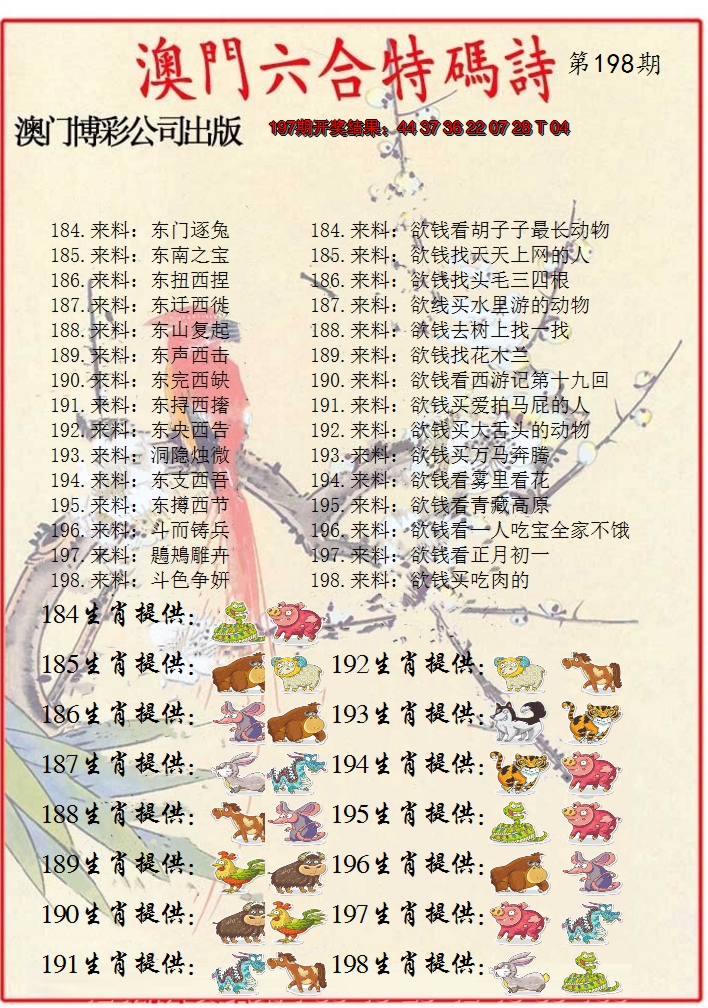 澳門六合特碼詩 第198期
澳门博彩公司出版 197期开奖结果：44 37 36 22 07 28 T 04
184.来料：东门逐兔 184.来料：欲钱看胡子子最长动物
185.来料：东南之宝 185.来料：欲钱找天天上网的人
186.来料：东扭西捏 186.来料：欲钱找头毛三四根
187.来料：东迁西徙 187.来料：欲线买水里游的动物
188.来料：东山复起 188.来料：欲钱去树上找一找
189.来料：东声西击 189.来料：欲钱找花木兰
190.来料：东完西缺 190.来料：欲钱看西游记第十九回
191.来料：东挦西撦 191.来料：欲钱买爱拍马屁的人
192.来料：东央西告 192.来料：欲钱买大舌头的动物
193.来料：洞隐烛微 193.来料：欲钱买万马奔腾
194.来料：东支西吾 194.来料：欲钱看雾里看花
195.来料：东撙西节 195.来料：欲钱看青藏高原
196.来料：斗而铸兵 196.来料：欲钱看一人吃宝全家不饿
197.来料：鵾鴂雕卉 197.来料：欲钱看正月初一
198.来料：斗色争妍 198.来料：欲钱买吃肉的
184生肖提供：
185生肖提供： 192生肖提供：
186生肖提供： 193生肖提供：
187生肖提供： 194生肖提供：
188生肖提供： 195生肖提供：
189生肖提供： 196生肖提供：
190生肖提供： 197生肖提供：
191生肖提供： 198生肖提供：